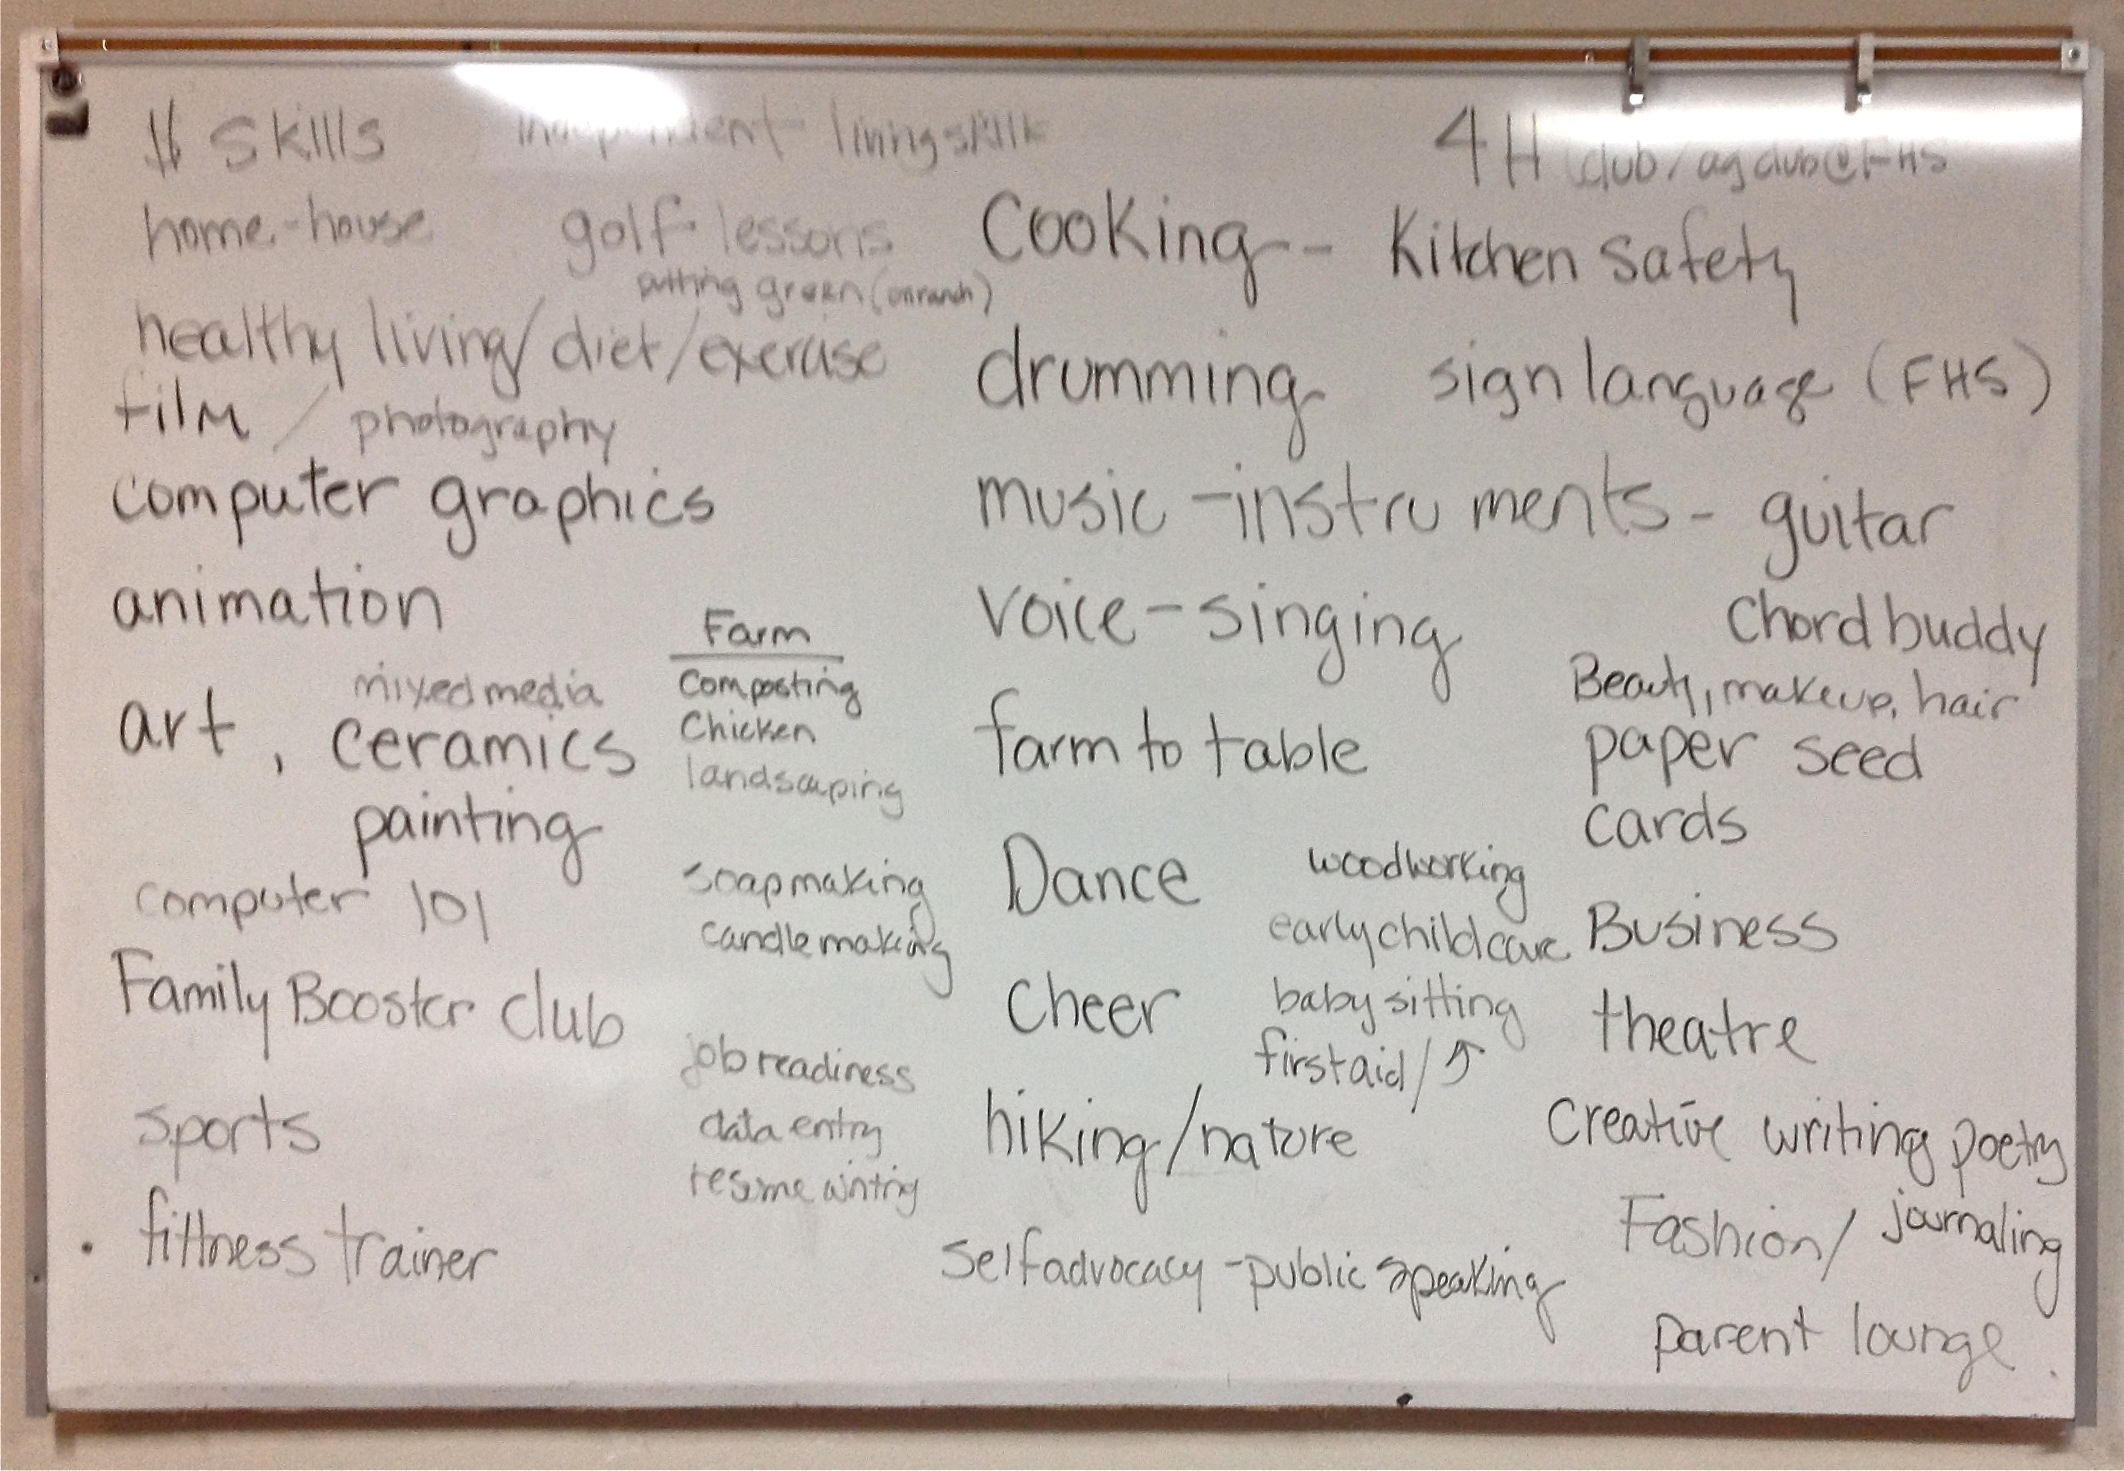 $ skills
independent living skills
home-house
golf lessons
putting green (on ranch)
healthy living/diet/exercise
film / photography
computer graphics
animation
mixed media
art, ceramics
painting
computer 101
Family Booster club
sports
fittness trainer
Farm
Composting
Chicken
landscaping
soapmaking
candlemaking
job readiness
data entry
resume writing
4H club/ag club @ FHS
Cooking - Kitchen safety
drumming sign language (FHS)
music - instruments - guitar
voice - singing
Chord buddy
Beauty, makeup, hair
farm to table
paper seed
cards
Dance
woodworking
early childcare
Business
Cheer
baby sitting
first aid/↑
theatre
hiking/nature
Creative writing poetry
Fashion/ journaling
self advocacy - public speaking
parent lounge